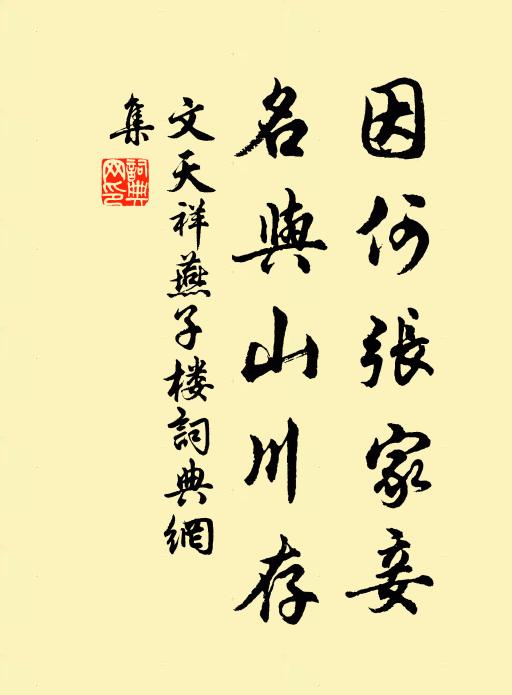 因何張家妾
名與山川存
文天祥燕子楼詞典網
集
詞典
网印